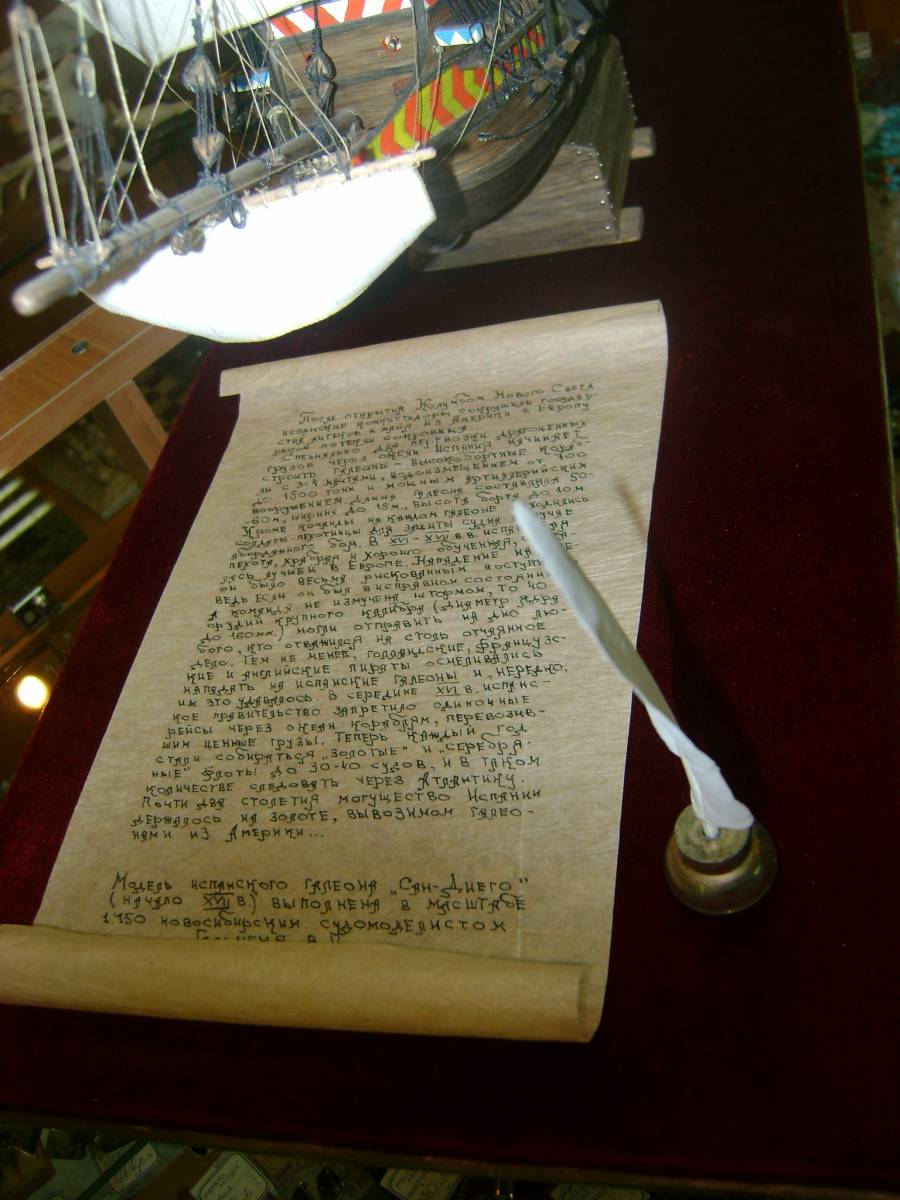 После открытия Колумбом Нового Света
испанские конкистадоры сокрушили государ-
ства ацтеков и майя. Из Америки в Европу
рекой потекли сокровища...
Специально для перевозки драгоценных
грузов через океан Испания начинает
строить галеоны – высокобортные кораб-
ли с 3-4 мачтами, водоизмещением от 700
до 1500 тонн и мощным артиллерийским
вооружением. Длина галеона составляла 50-
-60м, ширина до 15м, высота борта до 10м.
Кроме команды на каждом галеоне находились
солдаты-пехотинцы для защиты судна в случае
абордажного боя. В XVI – XVII в.в. испанская
пехота, храбрая и хорошо обученная,
лучшей в Европе. Нападение на
он было весьма рискованным
ведь если он был в исправном состоянии
а команда не измучена штормом, то 40
орудий крупного калибра (диаметр ядра
до 160мм.) могли отправить на дно лю-
бого, кто отважился на столь отчаянное
дело. Тем не менее, голландские, француз-
кие и английские пираты осмеливались
нападать на испанские галеоны и, нередко,
им это удавалось. В середине XVI в. испанс-
кое правительство запретило одиночные
рейсы через океан кораблям, перевозив-
шим ценные грузы. Теперь каждый год
стали собираться „золотые" и „серебря-
ные" флоты до 30-40 судов, и в таком
количестве следовать через Атлантику.
Почти два столетия могущество Испании
держалось на золоте, вывозимом галео-
нами из Америки...
Модель испанского галеона „Сан-Диего"
(начало XVII в.) выполнена в масштабе
1:150 новосибирским судомоделистом